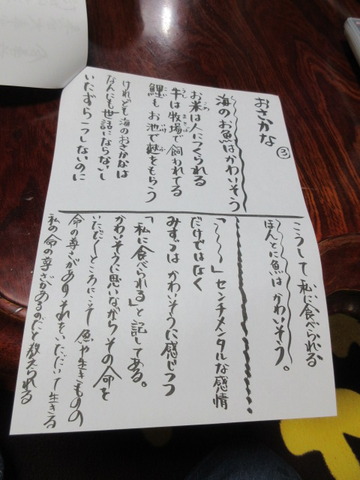 おさかな ③
海のお魚はかわいそう
お米は人につくられる
牛は牧場で飼われてる
鯉もお池で麩をもらう
けれども海のおさかなは
なんにも世話にならないし
いたずら一つしないのに
こうして私に食べられる
ほんとに魚はかわいそう。
「〜〜」センチメンタルな感情
だけではなく
みすゞはかわいそうに感じつつ
「私に食べられる」と記してある。
かわいそうに思いながらその命を
いただくところにこそ魚や生きものの
命の尊さがありそれをいただいて生きる
私の命の尊さがあるのだと教えられる